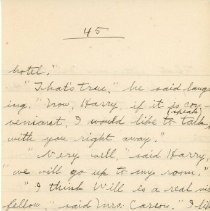 45
hotel."
"That's true," he said laugh-
ing. "Now, Harry if it is con-
(speak)
venient, I would like to talk
with you right away."
"Very well," said Harry,
"we will go up to my room."
"I think Will is a real nice
fellow," said Mrs. Carson, "I